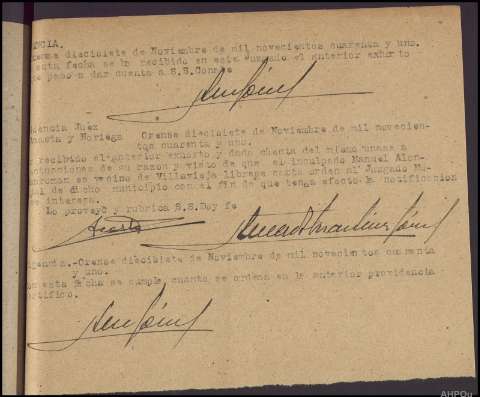 NCIA.
ense diecisiete de Noviembre de mil novecientos cuarenta y uno.
esta fecha se ha recibido en este Juzgado el anterior exhorto
paso a dar cuenta a S.S. Conste
dencia Juez
Acosta y Noriega Orense diecisiete de Noviembre de mil novecien-
tos cuarenta y uno.
recibido el anterior exhorto y dada cuenta del mismo unase a
actuaciones de su razon y visto de que el inculpado Manuel Alon-
es vecino de Villavieja librese carta orden al Juzgado Mu-
pal de dicho municipio con el fin de que tenga efecto la notificacion
se interesa.
Lo proveyo y rubrica S.S. Doy fe
Acosta
gencia.-Orense diecisiete de Noviembre de mil novecientos cuarenta
y uno.
on esta fecha se cumple cuanto se ordena en la anterior providencia
rtifico.
AHPOu